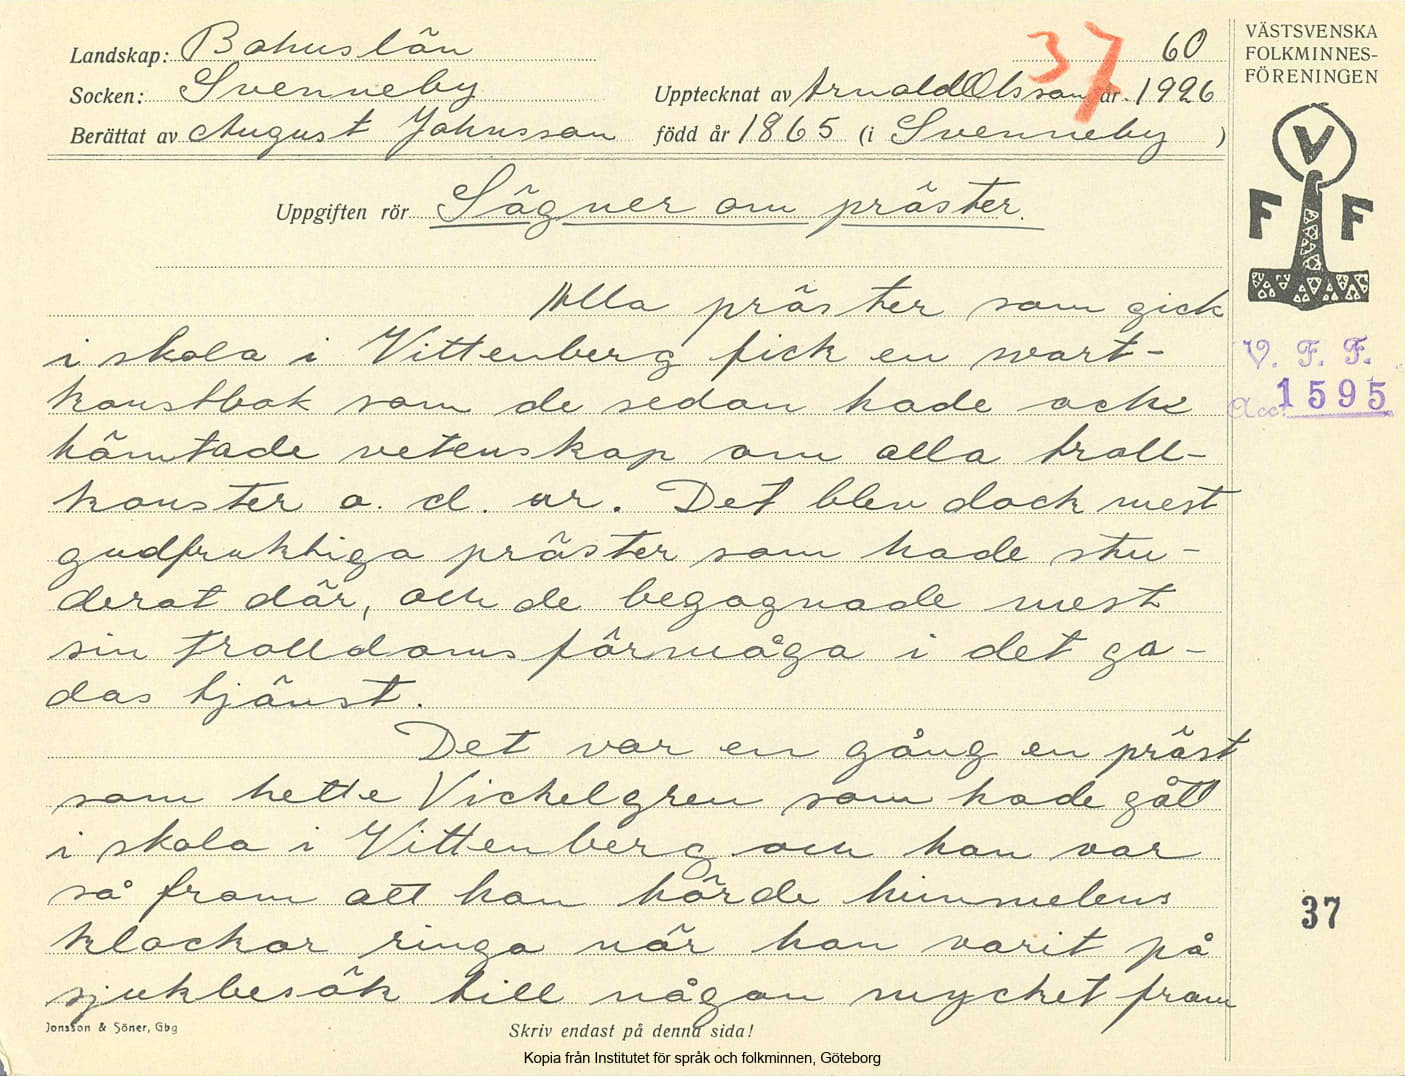 Landskap: Bohuslän
Socken: Svenneby
Berättat av August Johnsson
37
60
Upptecknat av Arnold Olsson år 1926
född år 1865 (i Svenneby )
Uppgiften rör Sägner om präster.
VÄSTSVENSKA
FOLKMINNES-
FÖRENINGEN
V
F F
V. F. F.
Acc. 1595
Alla präster som gick
i skola i Vittenberg fick en svart-
konstbok som de sedan hade och
hämtade vetenskap om alla troll-
konster o. d. ur. Det blev dock mest
gudfruktiga präster som hade stu-
derat där, och de begagnade mest
sin trolldomsförmåga i det go-
das tjänst.
Det var en gång en präst
som hette Vickelgren som hade gått
i skola i Vittenberg och han var
så from att han hörde himmelens
klockor ringa när han varit på
sjukbesök till någon mycket from
37
Jonsson & Söner, Gbg
Skriv endast på denna sida!
Kopia från Institutet för språk och folkminnen, Göteborg